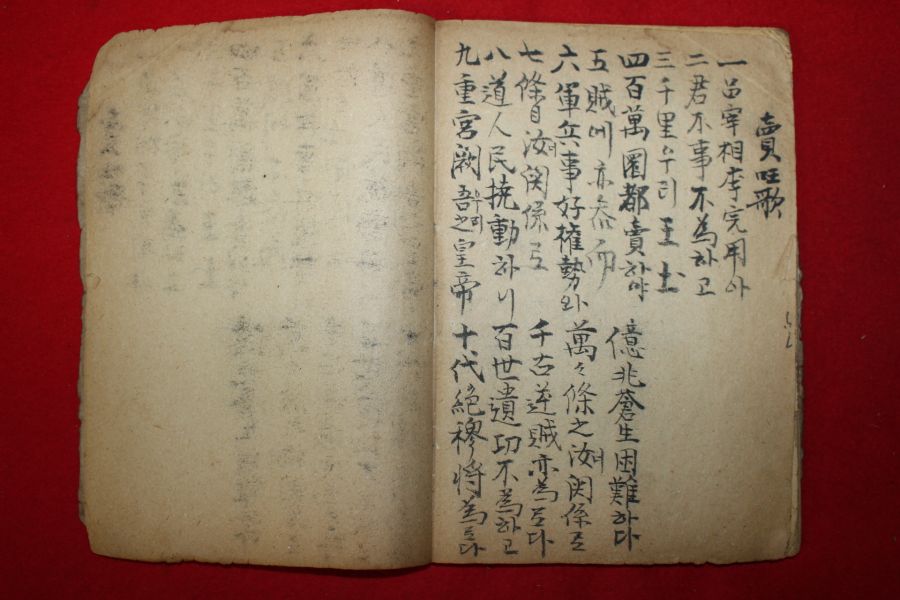 賣囯歌
一品宰相李完用아
二君不事不為하고
三千里우리王土
四百萬圜都賣하야 億兆蒼生困難하다
五賊에亦叅而
六軍兵事好權勢와 萬々條之汝여関係로
七條目汝여関係로 千古逆賊亦為로다
八道人民撓動하니 百世遺功不為하고
九重宮闕吾之우리皇帝 十代絶穆將為로다